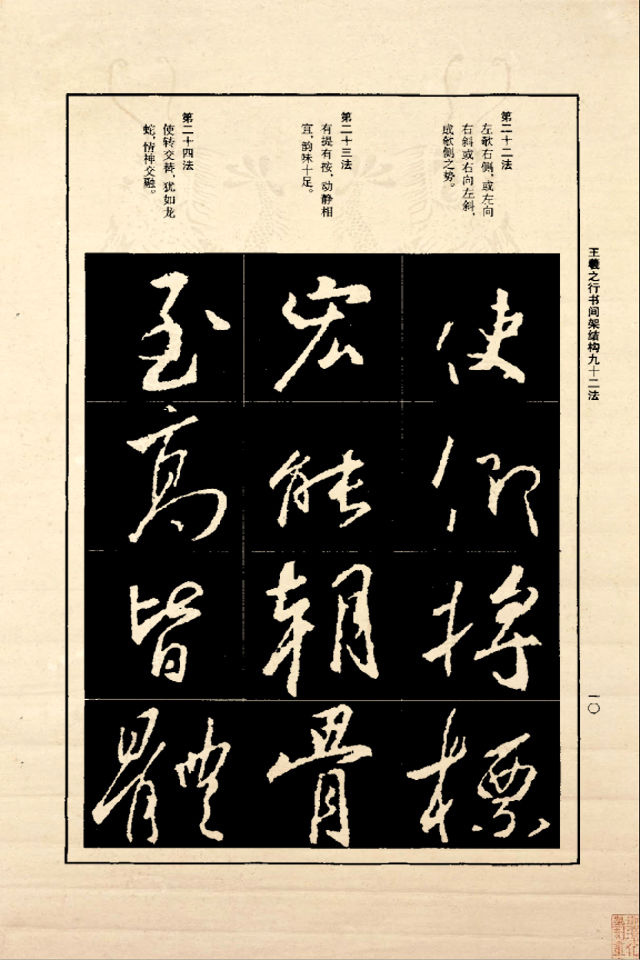 王羲之行书间架结构九十二法
一〇
第二十二法
左欹右侧，或左向
右斜或右向左斜，
成欹侧之势。
使
仰
将
標
第二十三法
有提有按，动静相
宜，韵味十足。
宏
能
朝
骨
第二十四法
使转交替，犹如龙
蛇，情神交融。
至
高
皆
體